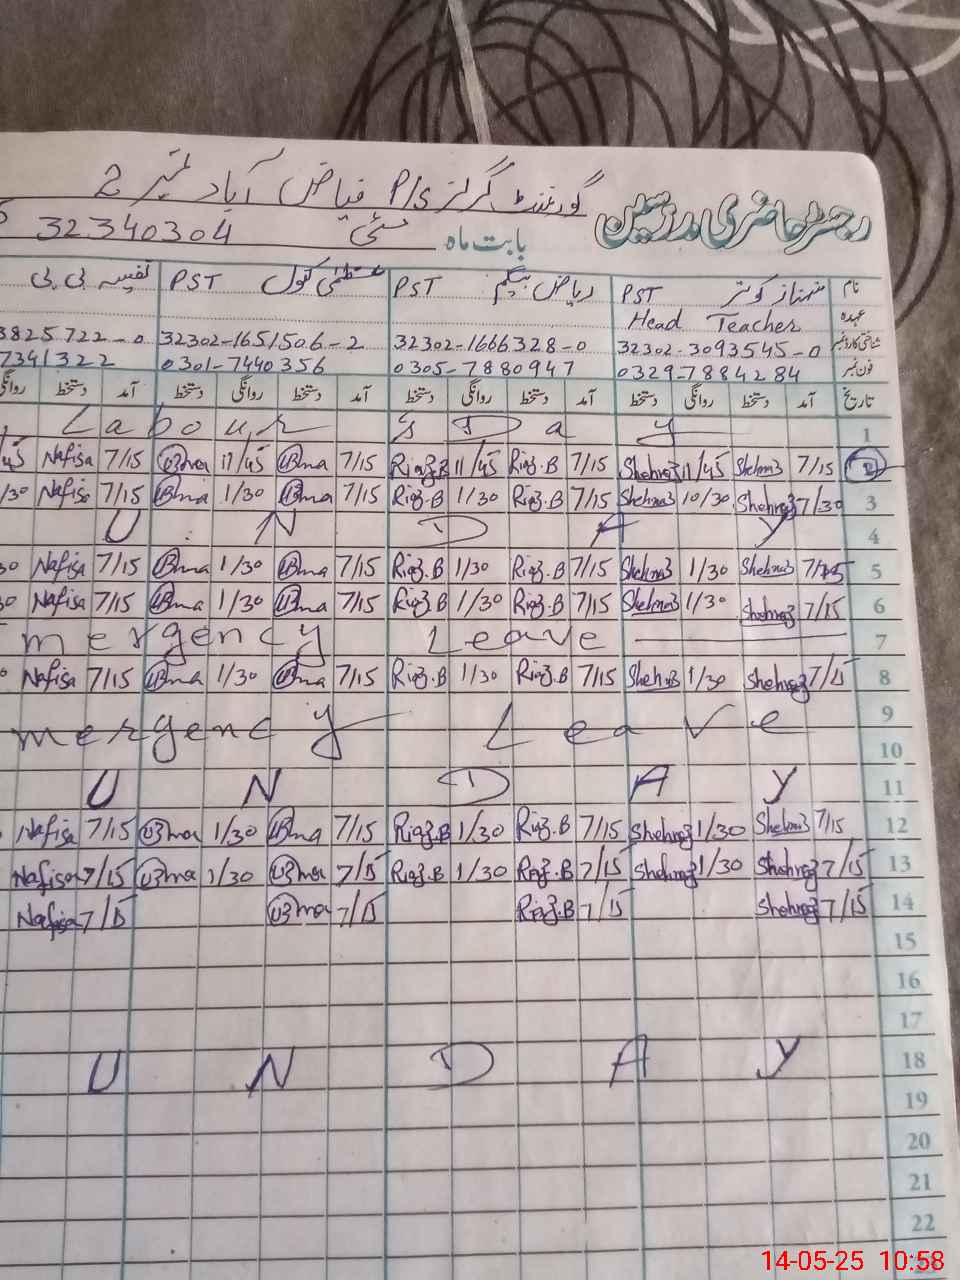 گورنمنٹ گرلز P/S فیاض آباد نمبر 2
رجسٹر حاضری مدرسین
بابت ماہ مئی 32340304
نام شہناز کوثر PST ریاض بیگم PST عظمیٰ بتول PST نفیسہ بی بی
عہدہ Head Teacher
شناختی کارڈ نمبر 32302-3093545-0 32302-1666328-0 32302-1651506-2 3825722-0
فون نمبر 0329-7884284 0305-7880947 0301-7440356 7341322
تاریخ آمد دستخط روانگی دستخط آمد دستخط روانگی دستخط آمد دستخط روانگی دستخط آمد دستخط روانگی
Labour,s Day 1
/45 Nafisa 7/15 Uzma 11/45 Uzma 7/15 Riaz.B 11/45 Riaz.B 7/15 Shehnaz 11/45 Shehnaz 7/15 2
/30 Nafisa 7/15 Uzma 1/30 Uzma 7/15 Riaz.B 1/30 Riaz.B 7/15 Shehnaz 10/30 Shehnaz 7/30 3
U N D A Y 4
30 Nafisa 7/15 Uzma 1/30 Uzma 7/15 Riaz.B 1/30 Riaz.B 7/15 Shehnaz 1/30 Shehnaz 7/15 5
30 Nafisa 7/15 Uzma 1/30 Uzma 7/15 Riaz.B 1/30 Riaz.B 7/15 Shehnaz 1/30 Shehnaz 7/15 6
mergency Leave 7
0 Nafisa 7/15 Uzma 1/30 Uzma 7/15 Riaz.B 1/30 Riaz.B 7/15 Shehnaz 1/30 Shehnaz 7/15 8
9
mergency Leave
10
U N D A Y 11
Nafisa 7/15 Uzma 1/30 Uzma 7/15 Riaz.B 1/30 Riaz.B 7/15 Shehnaz 1/30 Shehnaz 7/15 12
Nafisa 7/15 Uzma 1/30 Uzma 7/15 Riaz.B 1/30 Riaz.B 7/15 Shehnaz 1/30 Shehnaz 7/15 13
Nafisa 7/15 Uzma 7/15 Riaz.B 7/15 Shehnaz 7/15 14
15
16
17
U N D A Y 18
19
20
21
22
14-05-25 10:58